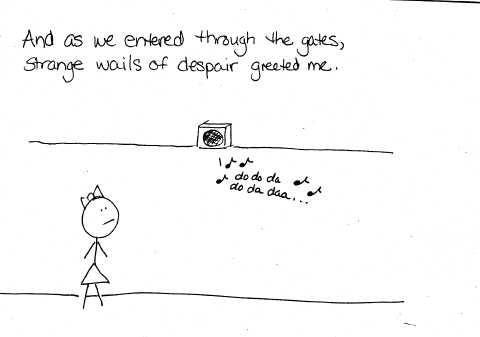 And as we entered through the gates,
strange wails of despair greeted me.
do do da
do da daa...